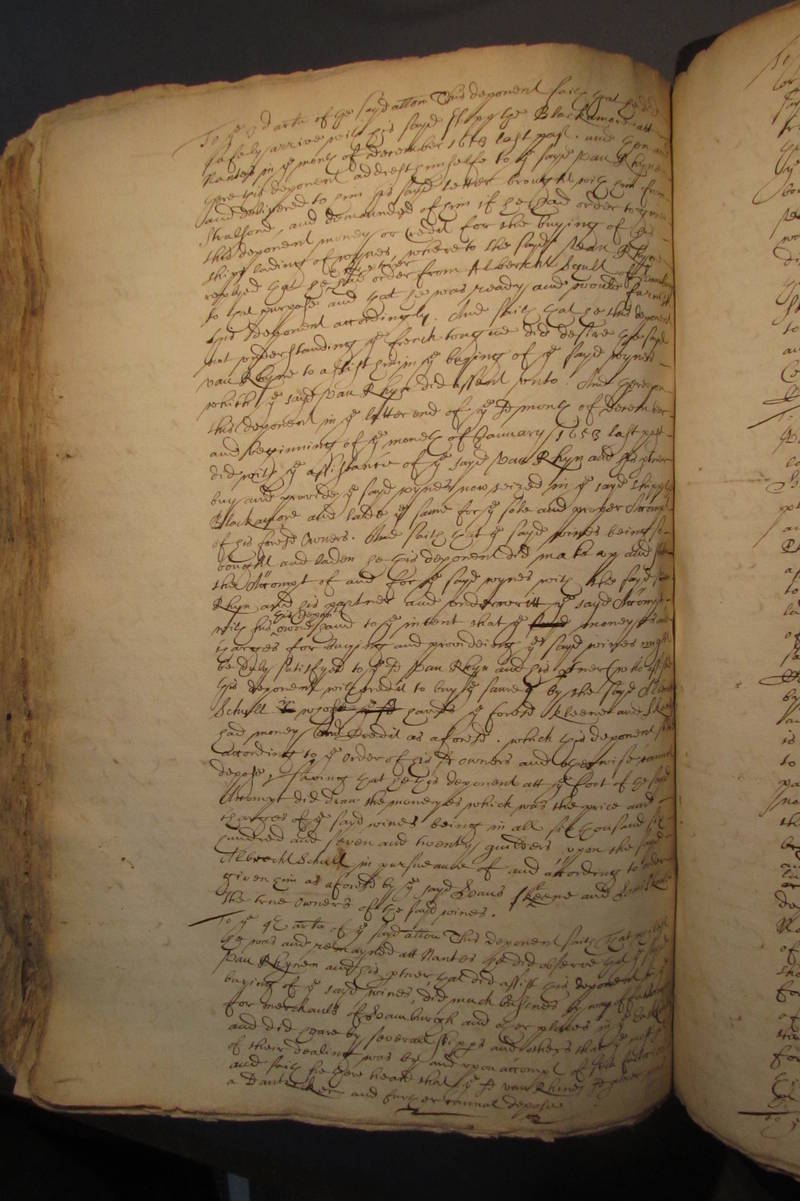 To the 3d arte of the sayd allon This deponent saith that hee did
safely arrive with his sayd shipp the Blackamore att
Nantes in ye month of December 1653 last past. and upon
there this deponent addrest himselfe to ye sayd Van Rhyne
and delivered to him his sayd letter brought with him from
Stralsond, and demanded of him if he had order to give
this deponent money or credit for the buying of his
ships lading of wynes, whereto the sayd Van Rhyne
replyed that he had order from Albercht Schull of
to that purpose and that he was ready and would furnish
this deponent accordingly. And saith that he this deponent
not understanding ye french tongue did desire the sayd
van Rhyne to assist him in ye buying of ye sayd wynes
which ye sayd Van Rhyne did assent unto. And thereupon
this deponent in ye latter end of ye sd month of December
and beginning of ye moneth of January 1653 last past
did with ye assistance of ye sayd Van Rhyn and his ptner
buy and provide ye sayd wynes now seized in ye sayd shipp ye
Blackamore and lade ye same for ye sole and proper Accompt
of his foresd Owners. And saith that ye sayd wines being so
bought and laden he this deponent did make up and
the Accompt of and for ye sayd wynes with the sayd Van
Rhyn and his partner and underwritt ye sayd Accompt
with his owne hand to ye intent that ye money and
charges for buying and provideing ye sayd wines might
be duly satisfyed to ye sd Van Rhyn and his ptner who
this deponent with credit to buy ye same by the sayd
Schull whose hands ye foresd Skeene and
had money and Credit as aforesd. which this deponent
according to ye order of his sd owners and otherwise cannot
depose, saving that he this deponent att ye foot of the sayd
Accompt did draw the moneyes which was the price and
charges of ye sayd wines being in all six thousand six
hundred and seven and twenty guilders upon the sayd
Albrecht Schull in pursueance of and according to order
given him as aforesd by ye sayd Hans Skeene and
the true Owners of the sayd wines.
To ye 4th arte of ye sayd allon This deponent saith that whilest
he was and remayned att Nantes he did observe that ye sayd
Van Rhynen and his ptner that did assist this deponent in ye
buying of ye sayd wines, did much busines by way of
for merchants of Hamburgh and other places in ye
and did heare by severall skipps and others that ye most
of their dealing was by and upon accompt of such factorie
and saith he there heard that ye sd van Rhinen
a Dantzicker and further cannot depose